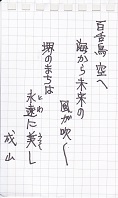 百舌鳥空へ
海から未来の
風が吹く
堺のまちは
永遠に美し
とわ
成山